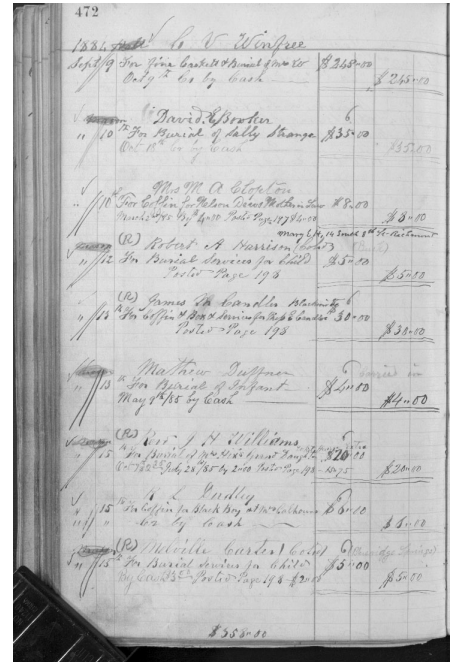 472
1884 C V Winfree
Sept 9 For fine Casket & Burial of Mrs W $248.00
Oct 9th Co by Cash $248.00
David G Booker
" 10th For Burial of Sally Strange $35.00
Oct 18th Cr by Cash $35.00
Mrs M A Clopton
" 10th For Coffin for Nelson Mother in Law $8.00
March 2nd /85 By $4.00 Posted Page 197 $4.00 $8.00
14 South 8th St Richmond
(R) Robert A Harrison (Cold)
" 12 For Burial Services for Child $5.00
Posted Page 198 $5.00
(R) James Candler
" 13th For Coffin & Box & Services for $30.00
Posted Page 198 $30.00
Mathew Duffner
" 13th For Burial of Infant $4.00
May 9th/85 by Cash $4.00
(R) Rev. J H Williams
" 15th For Burial of Mrs Grand Daughter $20.00
July 28th/85 by 2.00 Posted Page 198 $20.00
R L Dudley
" 15th For Coffin for Black Boy at Mrs Calhouns $6.00
" " Cr by Cash $6.00
(R) Melville Carter (Cold)
" 15th For Burial Services for Child $5.00
By Cash Posted Page 198 $2.00 $5.00
$358.00